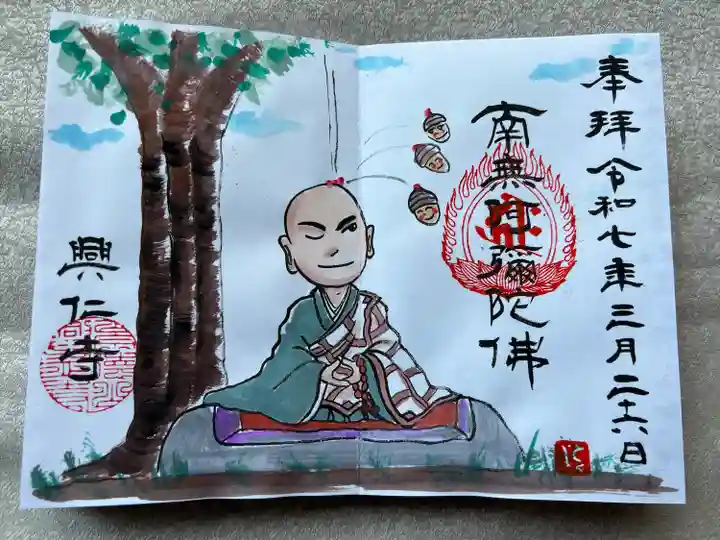 奉拝 令和七年三月二十六日
南無阿彌陀佛
興仁寺